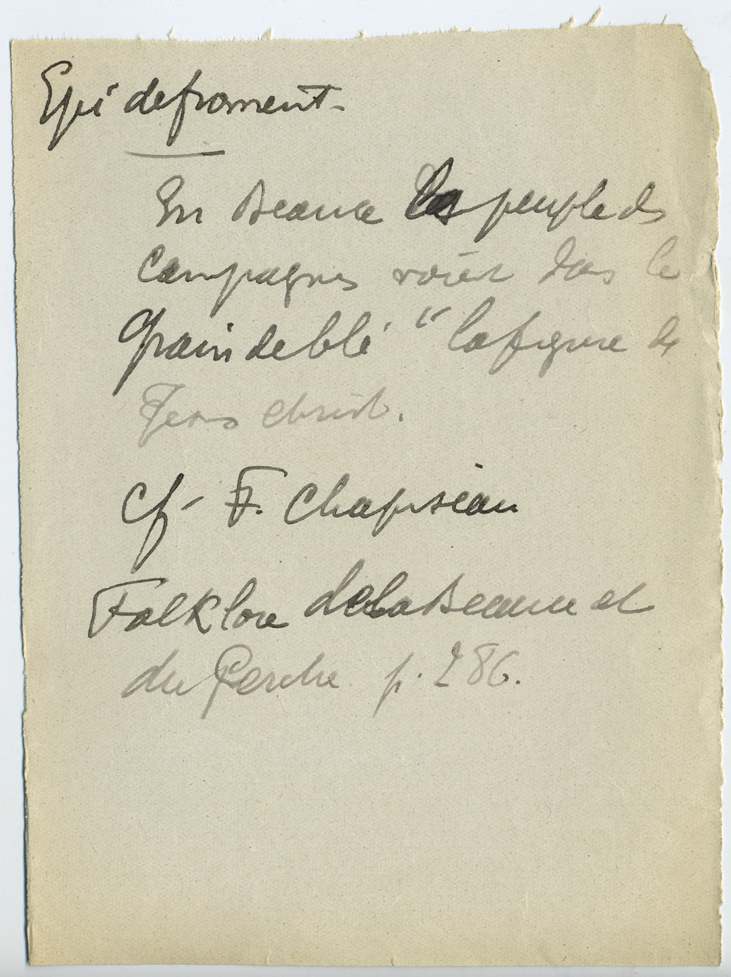 Epi de froment.
En Beauce le peuple des
campagnes voient dans le
grain de blé "la figure de
Jesus christ.
cf- F. Chapiseau
Folklore de la Beauce et
du Perche p. 286.